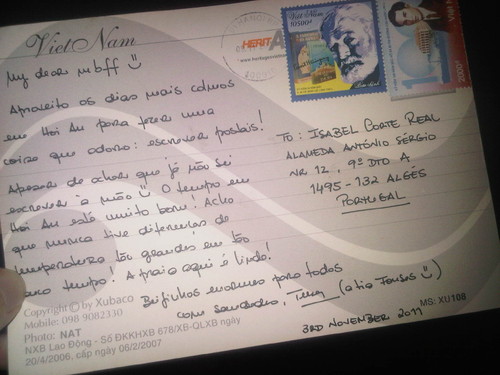 Việt Nam
HERITA
Việt Nam
10500đ
2000đ
My dear mbff
Aproveito os dias mais calmos
em Hoi An para fazer uma
coisa que adoro: escrever postais!
Apesar de achar que já não sei
escrever à mão O tempo em
Hoi An está muito bom! Acho
que nunca tive diferenças de
temperatura tão grandes em tão
pouco tempo! A praia aqui é linda!
Beijinhos enormes para todos
com saudades,
3RD NOVEMBER 2011
TO: ISABEL CORTE REAL
ALAMEDA ANTÓNIO SÉRGIO
NR. 12, 9º DTO A
1495-132 ALGÉS
PORTUGAL
Copyright © by Xubaco
Mobile: 098 9082330
Photo: NAT
NXB Lao Động - Số ĐKKHXB 678/XB-QLXB ngày
20/4/2006, cấp ngày 06/2/2007
MS: XU108